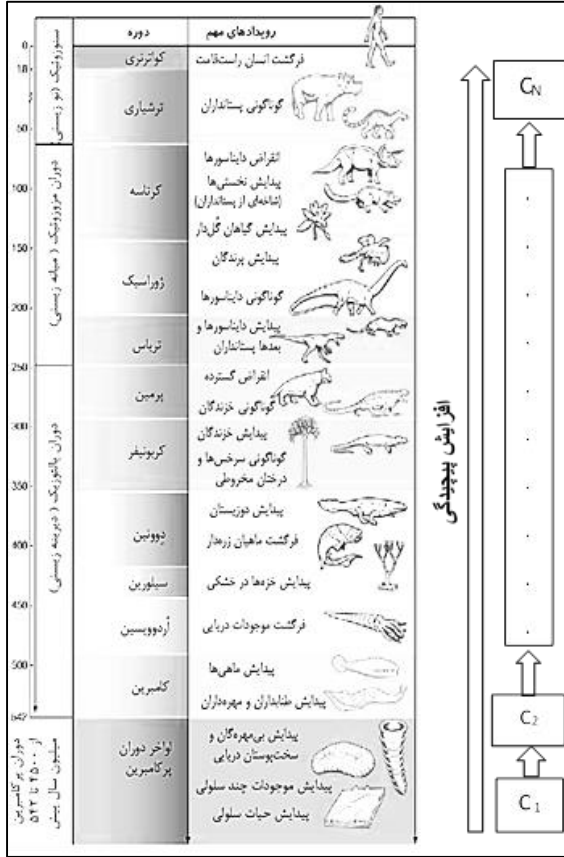 دوره
رویدادهای مهم
0
کواترنری
فرگشت انسان راست‌قامت
18
ترشیاری
گوناگونی پستانداران
50
سنوزوئیک (نو زیستی)
کرتاسه
انقراض دایناسورها
پیدایش نخستی‌ها
(شاخه‌ای از پستانداران)
پیدایش گیاهان گُل‌دار
100
150
ژوراسیک
پیدایش پرندگان
گوناگونی دایناسورها
200
تریاس
پیدایش دایناسورها و
بعدها پستانداران
250
دوران مزوزوئیک (میانه زیستی)
پرمین
انقراض گسترده
گوناگونی خزندگان
300
کربونیفر
پیدایش خزندگان
گوناگونی سرخس‌ها و
درختان مخروطی
350
دِوونین
پیدایش دوزیستان
فرگشت ماهیان زره‌دار
400
سیلورین
پیدایش خزه‌ها در خشکی
450
اُردوویسین
فرگشت موجودات دریایی
500
کامبرین
پیدایش ماهی‌ها
پیدایش طنابداران و مهره‌داران
542
دوران پالئوزیک (دیرینه زیستی)
لواخر دوران
پرکامبرین
پیدایش بی‌مهره‌گان و
سخت‌پوستان دریایی
پیدایش موجودات چند سلولی
پیدایش حیات سلولی
دوران پرکامبرین
از ۴۵۰۰ تا ۵۴۲
میلیون سال پیش
افزایش پیچیدگی
C N
C 2
C 1